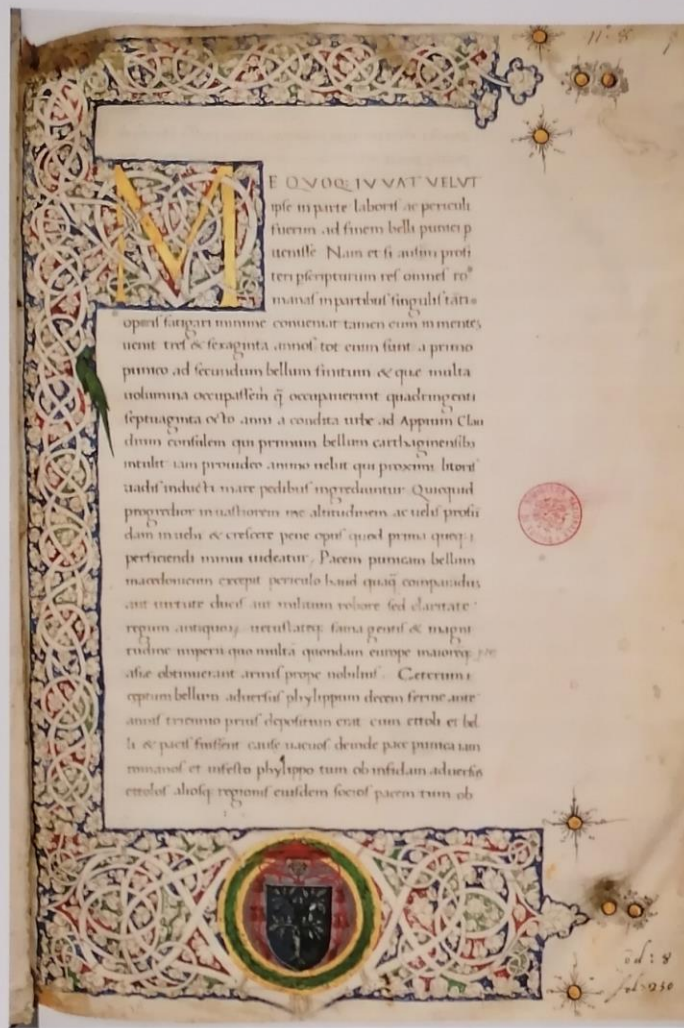 ME QVOQ; IVVAT VELVT
ipse in parte laboris ac periculi
fuerim ad finem belli punici p
uenisse Nam et si ausum profi
teri pscripturum res omnes ro
manas in partibus singulis tanti
operis fatigari minime conueniat tamen cum in mentē
uenit tres & sexaginta annos tot enim sunt a primo
punico ad secundum bellum finitum & que multa
uolumina occupassē in q̄ occupauerunt quadringenti
septuaginta octo anni a condita urbe ad Appium Clau
dium consulem qui primum bellum carthaginensibꝫ
intulit iam prouideo animo uelut qui proximi litoris
uadis inducti mare pedibus ingrediuntur Quicquid
progredior in uastiorem me altitudinem ac uelut profū
dam inuehi & crescere pene opus quod prima queq;
perficiendi minui uideatur Pacem punicam bellum
macedonicum excepit periculo haud quaq̄ comparandū
aut uirtute ducis aut militum robore sed claritate
regum antiquoꝝ uetustateq; fama gentis & magni
tudine imperii quo multa quondam europe maiorem
asiae obtinuerant armis prope nobilius Ceterum
ceptum bellum aduersus phylippum decem ferme ante
annis triennio prius depositum erat cum ettoli et bel
li & pacis fuissent cause uacuos deinde pace punica iam
romanos et infesto phylippo tum ob infidam aduersus
ettolos aliosq; regionis eiusdem socios pacem tum ob